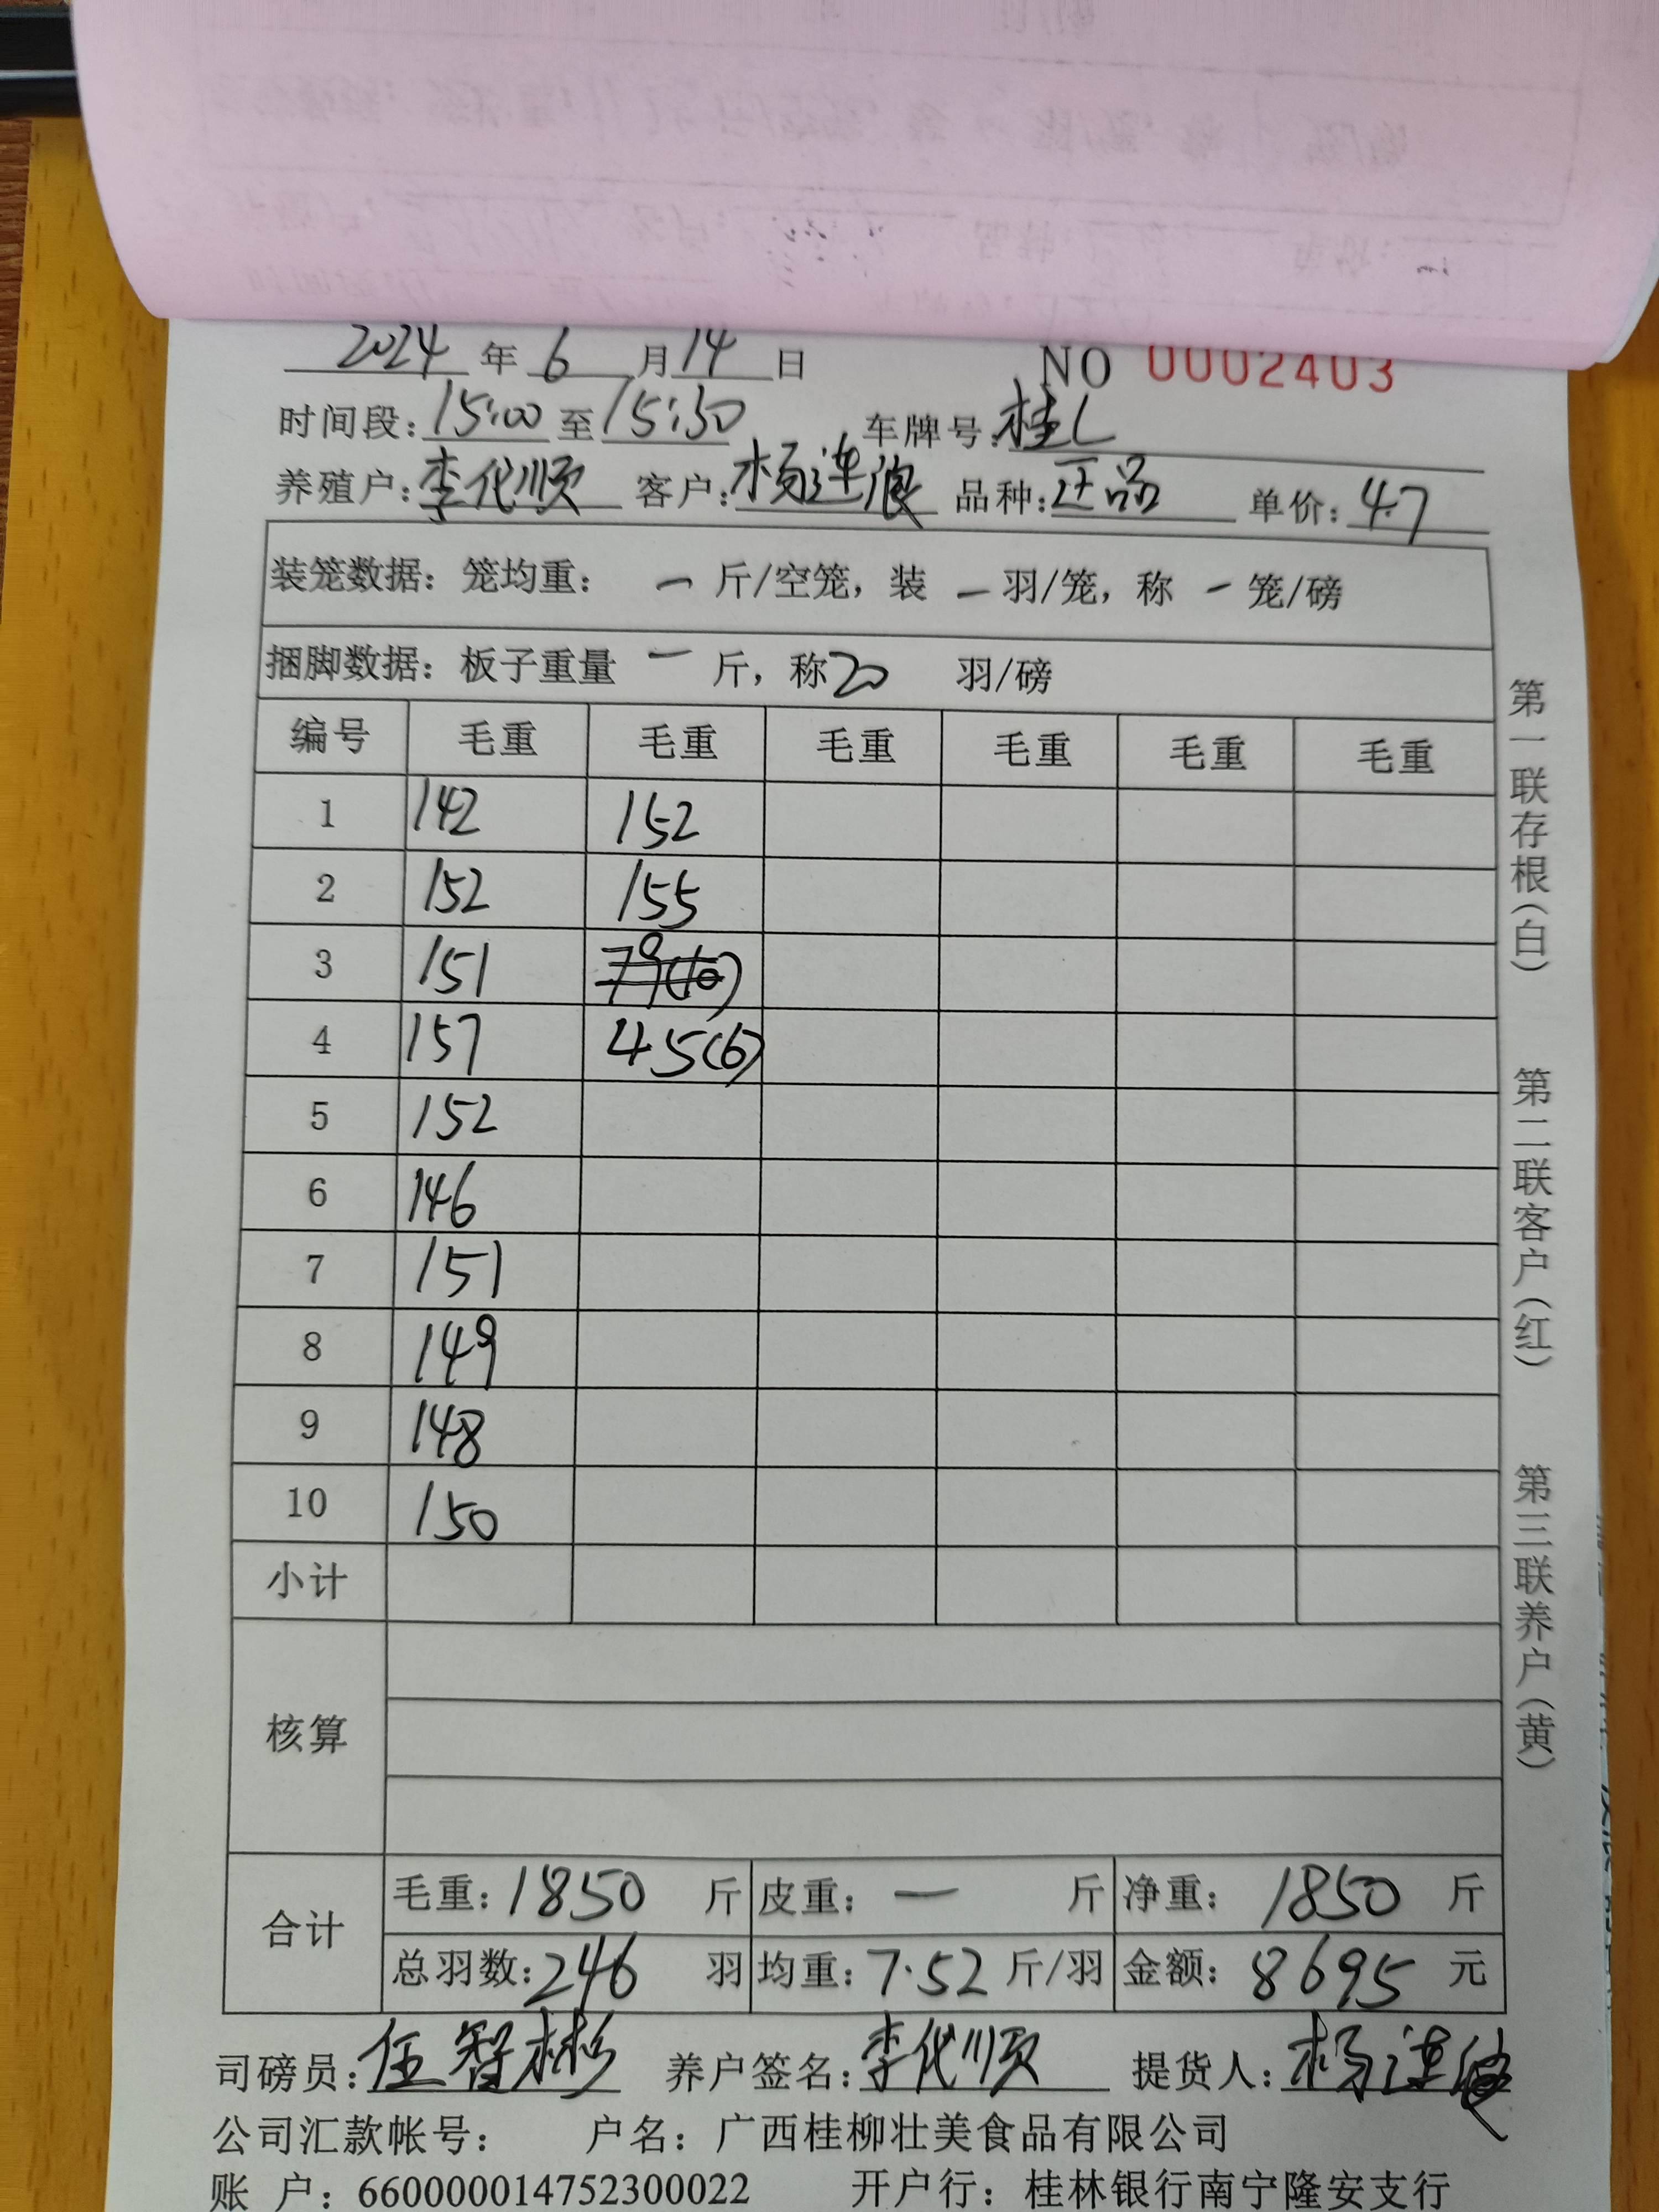 2024 年 6 月 14 日 NO 0002403
时间段: 15:00 至 15:30 车牌号: 桂L
养殖户: 李代顺 客户: 杨连浪 品种: 正品 单价: 4.7
装笼数据: 笼均重: 一 斤/空笼, 装 一 羽/笼, 称 一 笼/磅
捆脚数据: 板子重量 一 斤, 称 20 羽/磅
编号 毛重 毛重 毛重 毛重 毛重 毛重
1 142 152
2 152 155
3 151 79(10)
4 157 45(6)
5 152
6 146
7 151
8 149
9 148
10 150
小计
核算
合计
毛重: 1850 斤 皮重: 一 斤 净重: 1850 斤
总羽数: 246 羽 均重: 7.52 斤/羽 金额: 8695 元
司磅员: 伍智彬 养户签名: 李代顺 提货人: 杨连浪
公司汇款帐号: 户名: 广西桂柳壮美食品有限公司
账 户: 660000014752300022 开户行: 桂林银行南宁隆安支行
第一联存根(白)
第二联客户(红)
第三联养户(黄)